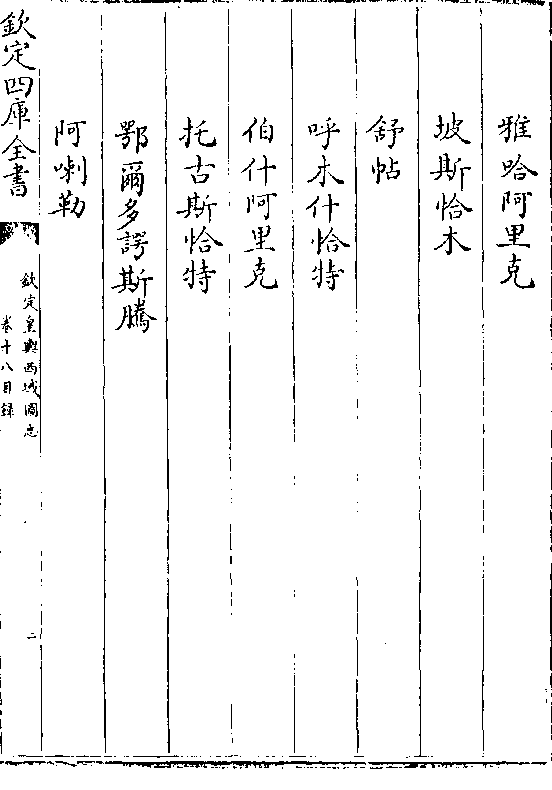 雅哈阿里克
坡斯恰木
舒帖
呼木什恰特
伯什阿里克
托古斯恰特
鄂爾多諤斯騰
阿喇勒
欽定四庫全書
欽定皇輿西域圖志
卷十八目録
二